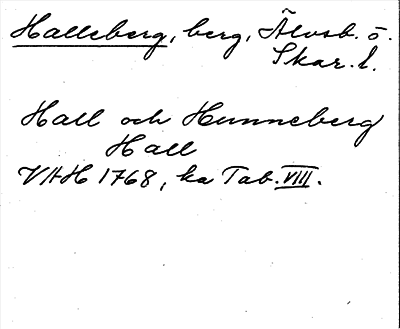 Halleberg, berg, Älvsb. o.
Skar. l.
Hall och Hunneberg
Hall
VAH 1768, ka Tab. VIII.